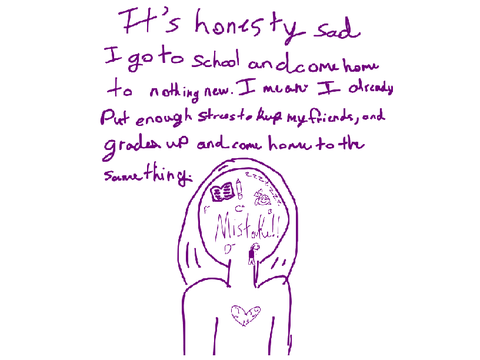 It's honesty sad
I go to school and come home
to nothing new. I mean I already
Put enough stress to keep my friends, and
grades up and come home to the
same thing.
Mistake!!